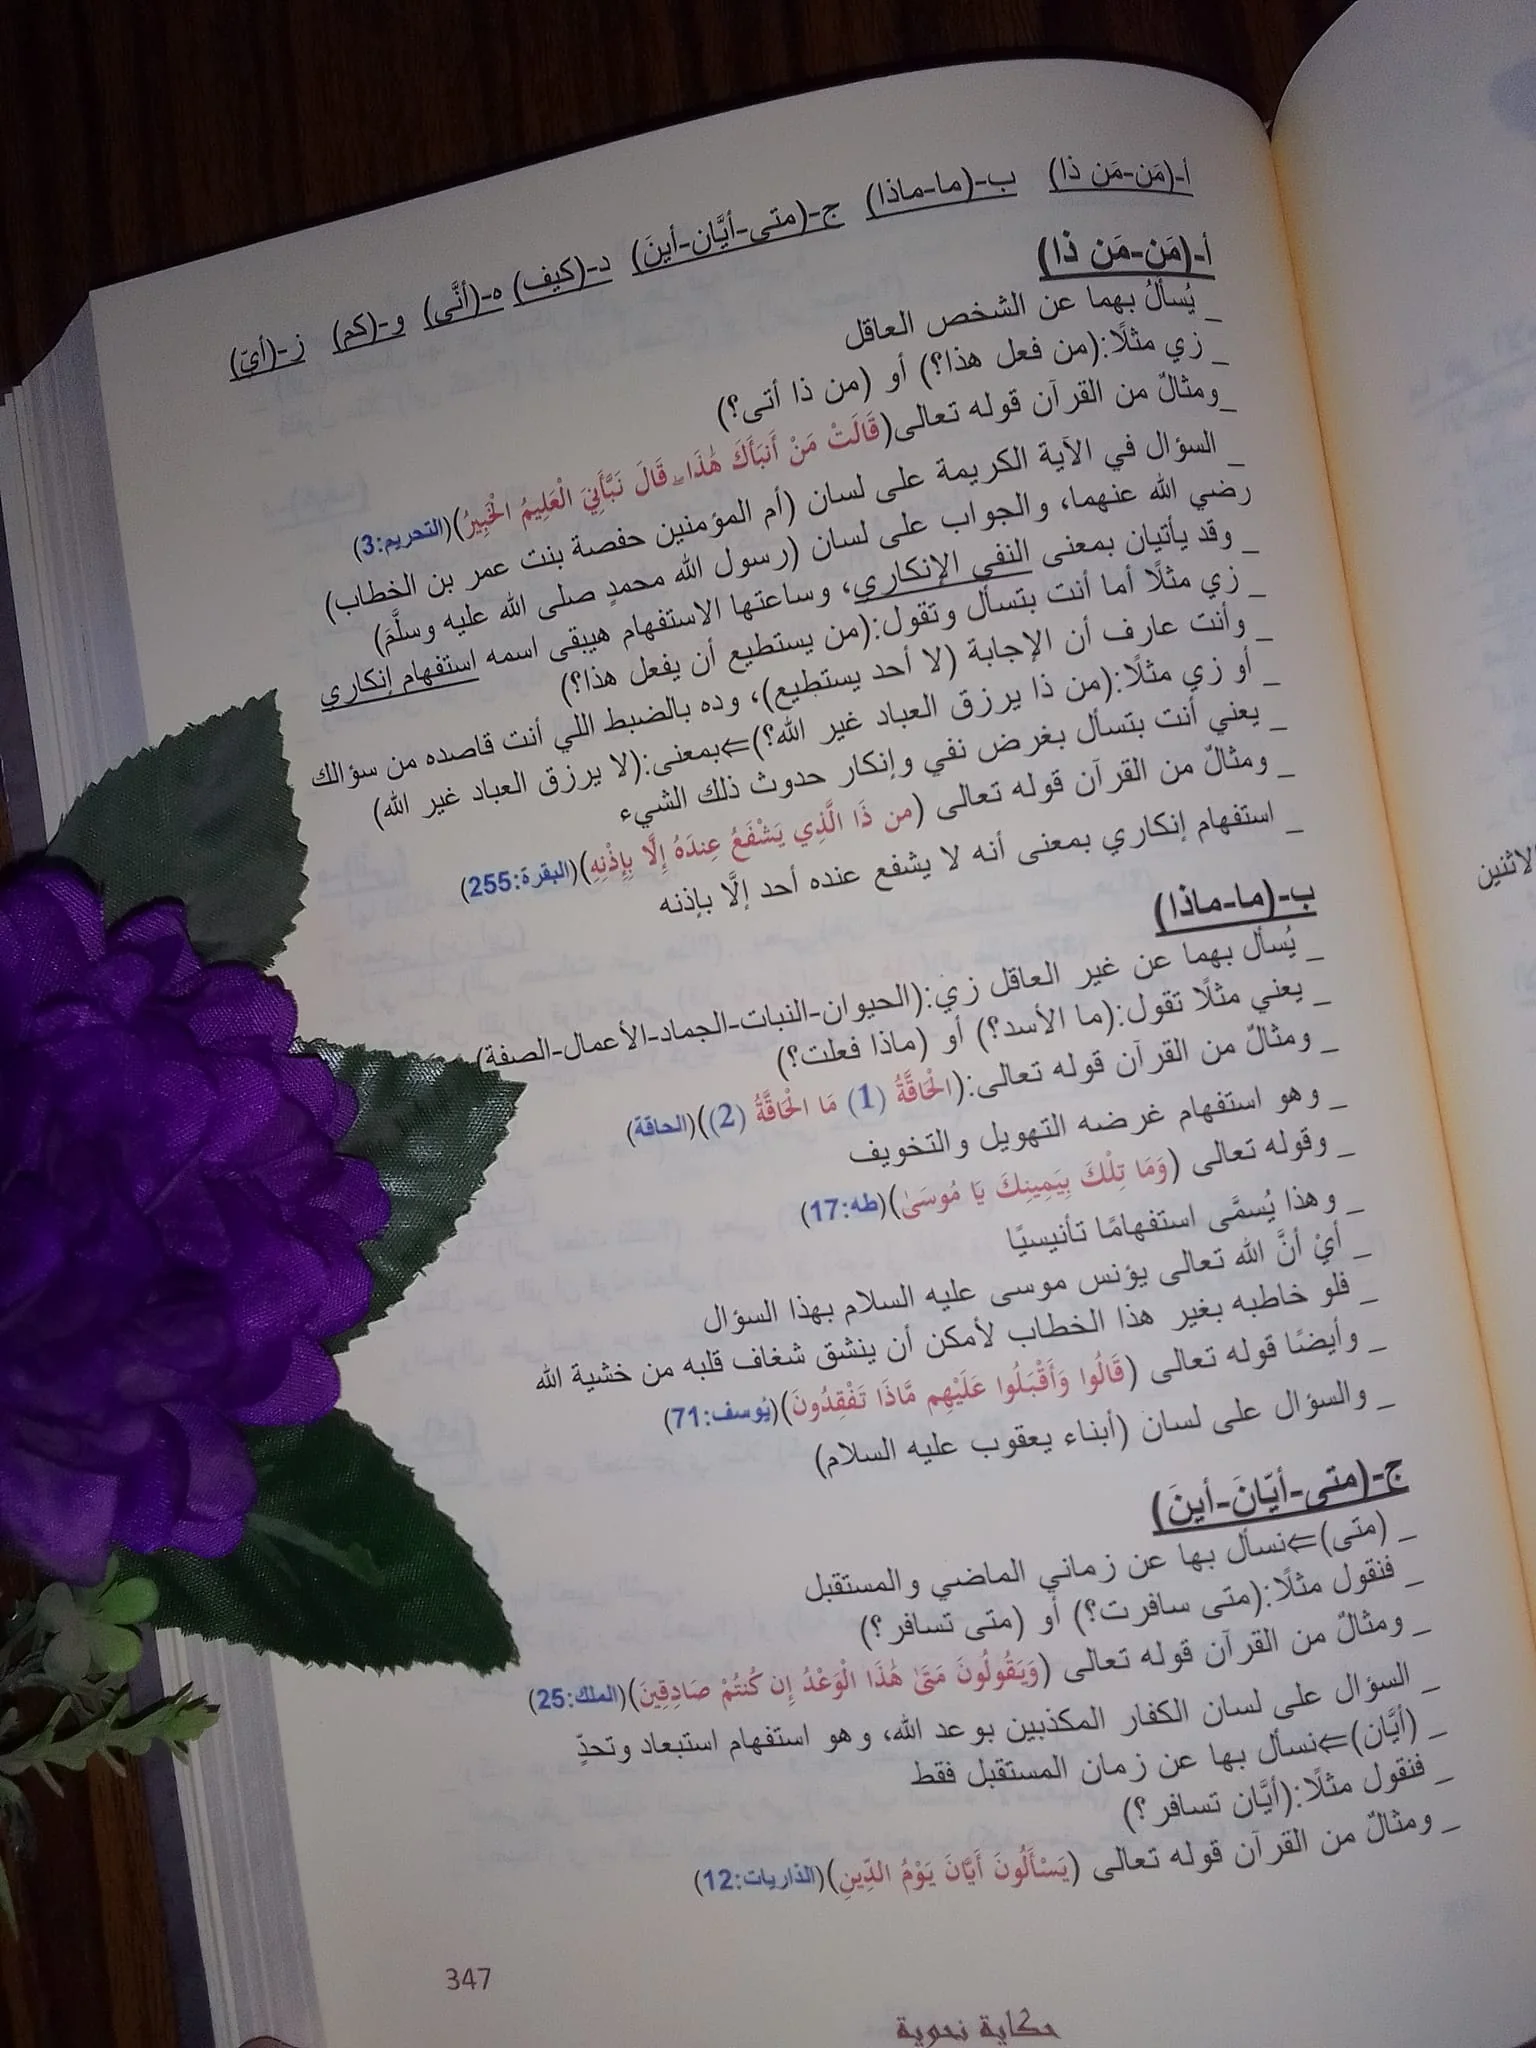 أ-(مَن-مَن ذا) ب-(ما-ماذا) ج-(متى-أيَّان-أينَ) د-(كيف) ه-(أنَّى) و-(كم) ز-(أيّ)
أ-(مَن-مَن ذا)
_ يُسألُ بهما عن الشخص العاقل
_ زي مثلًا:(من فعل هذا؟) أو (من ذا أتى؟)
_ومثالٌ من القرآن قوله تعالى(قَالَتْ مَنْ أَنبَأَكَ هَٰذَا ۖ قَالَ نَبَّأَنِيَ الْعَلِيمُ الْخَبِيرُ)(التحريم:3)
_ السؤال في الآية الكريمة على لسان (أم المؤمنين حفصة بنت عمر بن الخطاب)
رضي الله عنهما، والجواب على لسان (رسول الله محمدٍ صلى الله عليه وسلَّمَ)
_ وقد يأتيان بمعنى النفي الإنكاري، وساعتها الاستفهام هيبقى اسمه استفهام إنكاري
_ زي مثلًا أما أنت بتسأل وتقول:(من يستطيع أن يفعل هذا؟)
_ وأنت عارف أن الإجابة (لا أحد يستطيع)، وده بالضبط اللي أنت قاصده من سؤالك
_ أو زي مثلًا:(من ذا يرزق العباد غير الله؟)⇐بمعنى:(لا يرزق العباد غير الله)
_ يعني أنت بتسأل بغرض نفي وإنكار حدوث ذلك الشيء
_ ومثالٌ من القرآن قوله تعالى (من ذَا الَّذِي يَشْفَعُ عِندَهُ إِلَّا بِإِذْنِهِ)(البقرة:255)
_ استفهام إنكاري بمعنى أنه لا يشفع عنده أحد إلَّا بإذنه
ب-(ما-ماذا)
_ يُسأل بهما عن غير العاقل زي:(الحيوان-النبات-الجماد-الأعمال-الصفة)
_ يعني مثلًا تقول:(ما الأسد؟) أو (ماذا فعلت؟)
_ ومثالٌ من القرآن قوله تعالى:(الْحَاقَّةُ (1) مَا الْحَاقَّةُ (2))(الحاقة)
_ وهو استفهام غرضه التهويل والتخويف
_ وقوله تعالى (وَمَا تِلْكَ بِيَمِينِكَ يَا مُوسَىٰ)(طه:17)
_ وهذا يُسمَّى استفهامًا تأنيسيًا
_ أيْ أنَّ الله تعالى يؤنس موسى عليه السلام بهذا السؤال
_ فلو خاطبه بغير هذا الخطاب لأمكن أن ينشق شغاف قلبه من خشية الله
_ وأيضًا قوله تعالى (قَالُوا وَأَقْبَلُوا عَلَيْهِم مَّاذَا تَفْقِدُونَ)(يُوسف:71)
_ والسؤال على لسان (أبناء يعقوب عليه السلام)
ج-(متى-أيّانَ-أينَ)
_ (متى)⇐نسأل بها عن زماني الماضي والمستقبل
_ فنقول مثلًا:(متى سافرت؟) أو (متى تسافر؟)
_ ومثالٌ من القرآن قوله تعالى (وَيَقُولُونَ مَتَىٰ هَٰذَا الْوَعْدُ إِن كُنتُمْ صَادِقِينَ)(الملك:25)
_ السؤال على لسان الكفار المكذبين بوعد الله، وهو استفهام استبعاد وتحدٍّ
_ (أيَّان)⇐نسأل بها عن زمان المستقبل فقط
_ فنقول مثلًا:(أيَّان تسافر؟)
_ ومثالٌ من القرآن قوله تعالى (يَسْأَلُونَ أَيَّانَ يَوْمُ الدِّينِ)(الذاريات:12)
347
حكاية نحوية